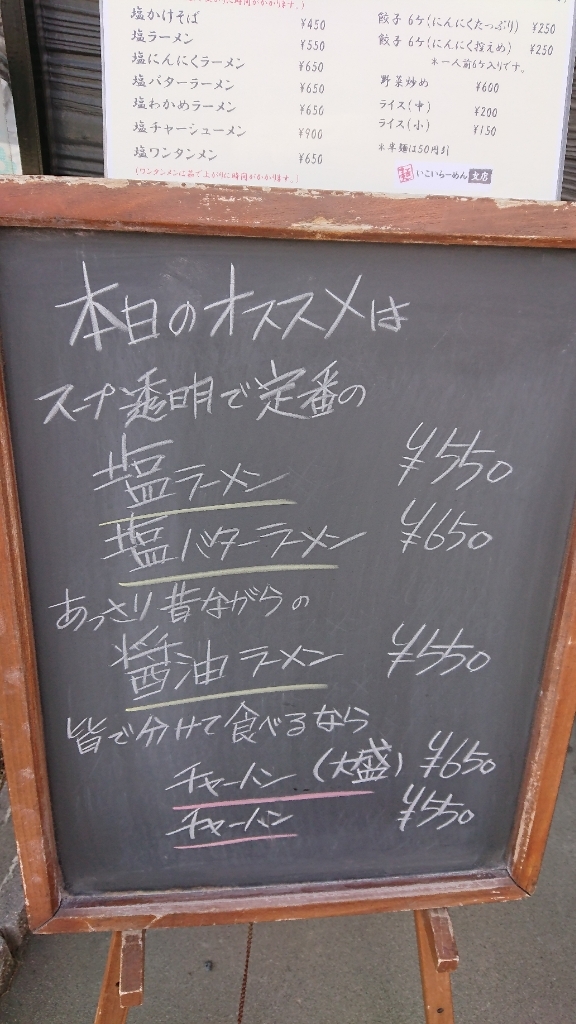 塩かけそば ¥450
塩ラーメン ¥550
塩にんにくラーメン ¥650
塩バターラーメン ¥650
塩わかめラーメン ¥650
塩チャーシューメン ¥900
塩ワンタンメン ¥650
餃子 6ケ(にんにくたっぷり) ¥250
餃子 6ケ(にんにく控えめ) ¥250
*一人前6ケ入りです。
野菜炒め ¥600
ライス(中) ¥200
ライス(小) ¥150
*半麺は50円引
いこいらーめん 支店
本日のオススメは
スープ透明で定番の
塩ラーメン ¥550
塩バターラーメン ¥650
あっさり昔ながらの
醤油ラーメン ¥550
皆で分けて食べるなら
チャーハン (大盛) ¥650
チャーハン ¥550